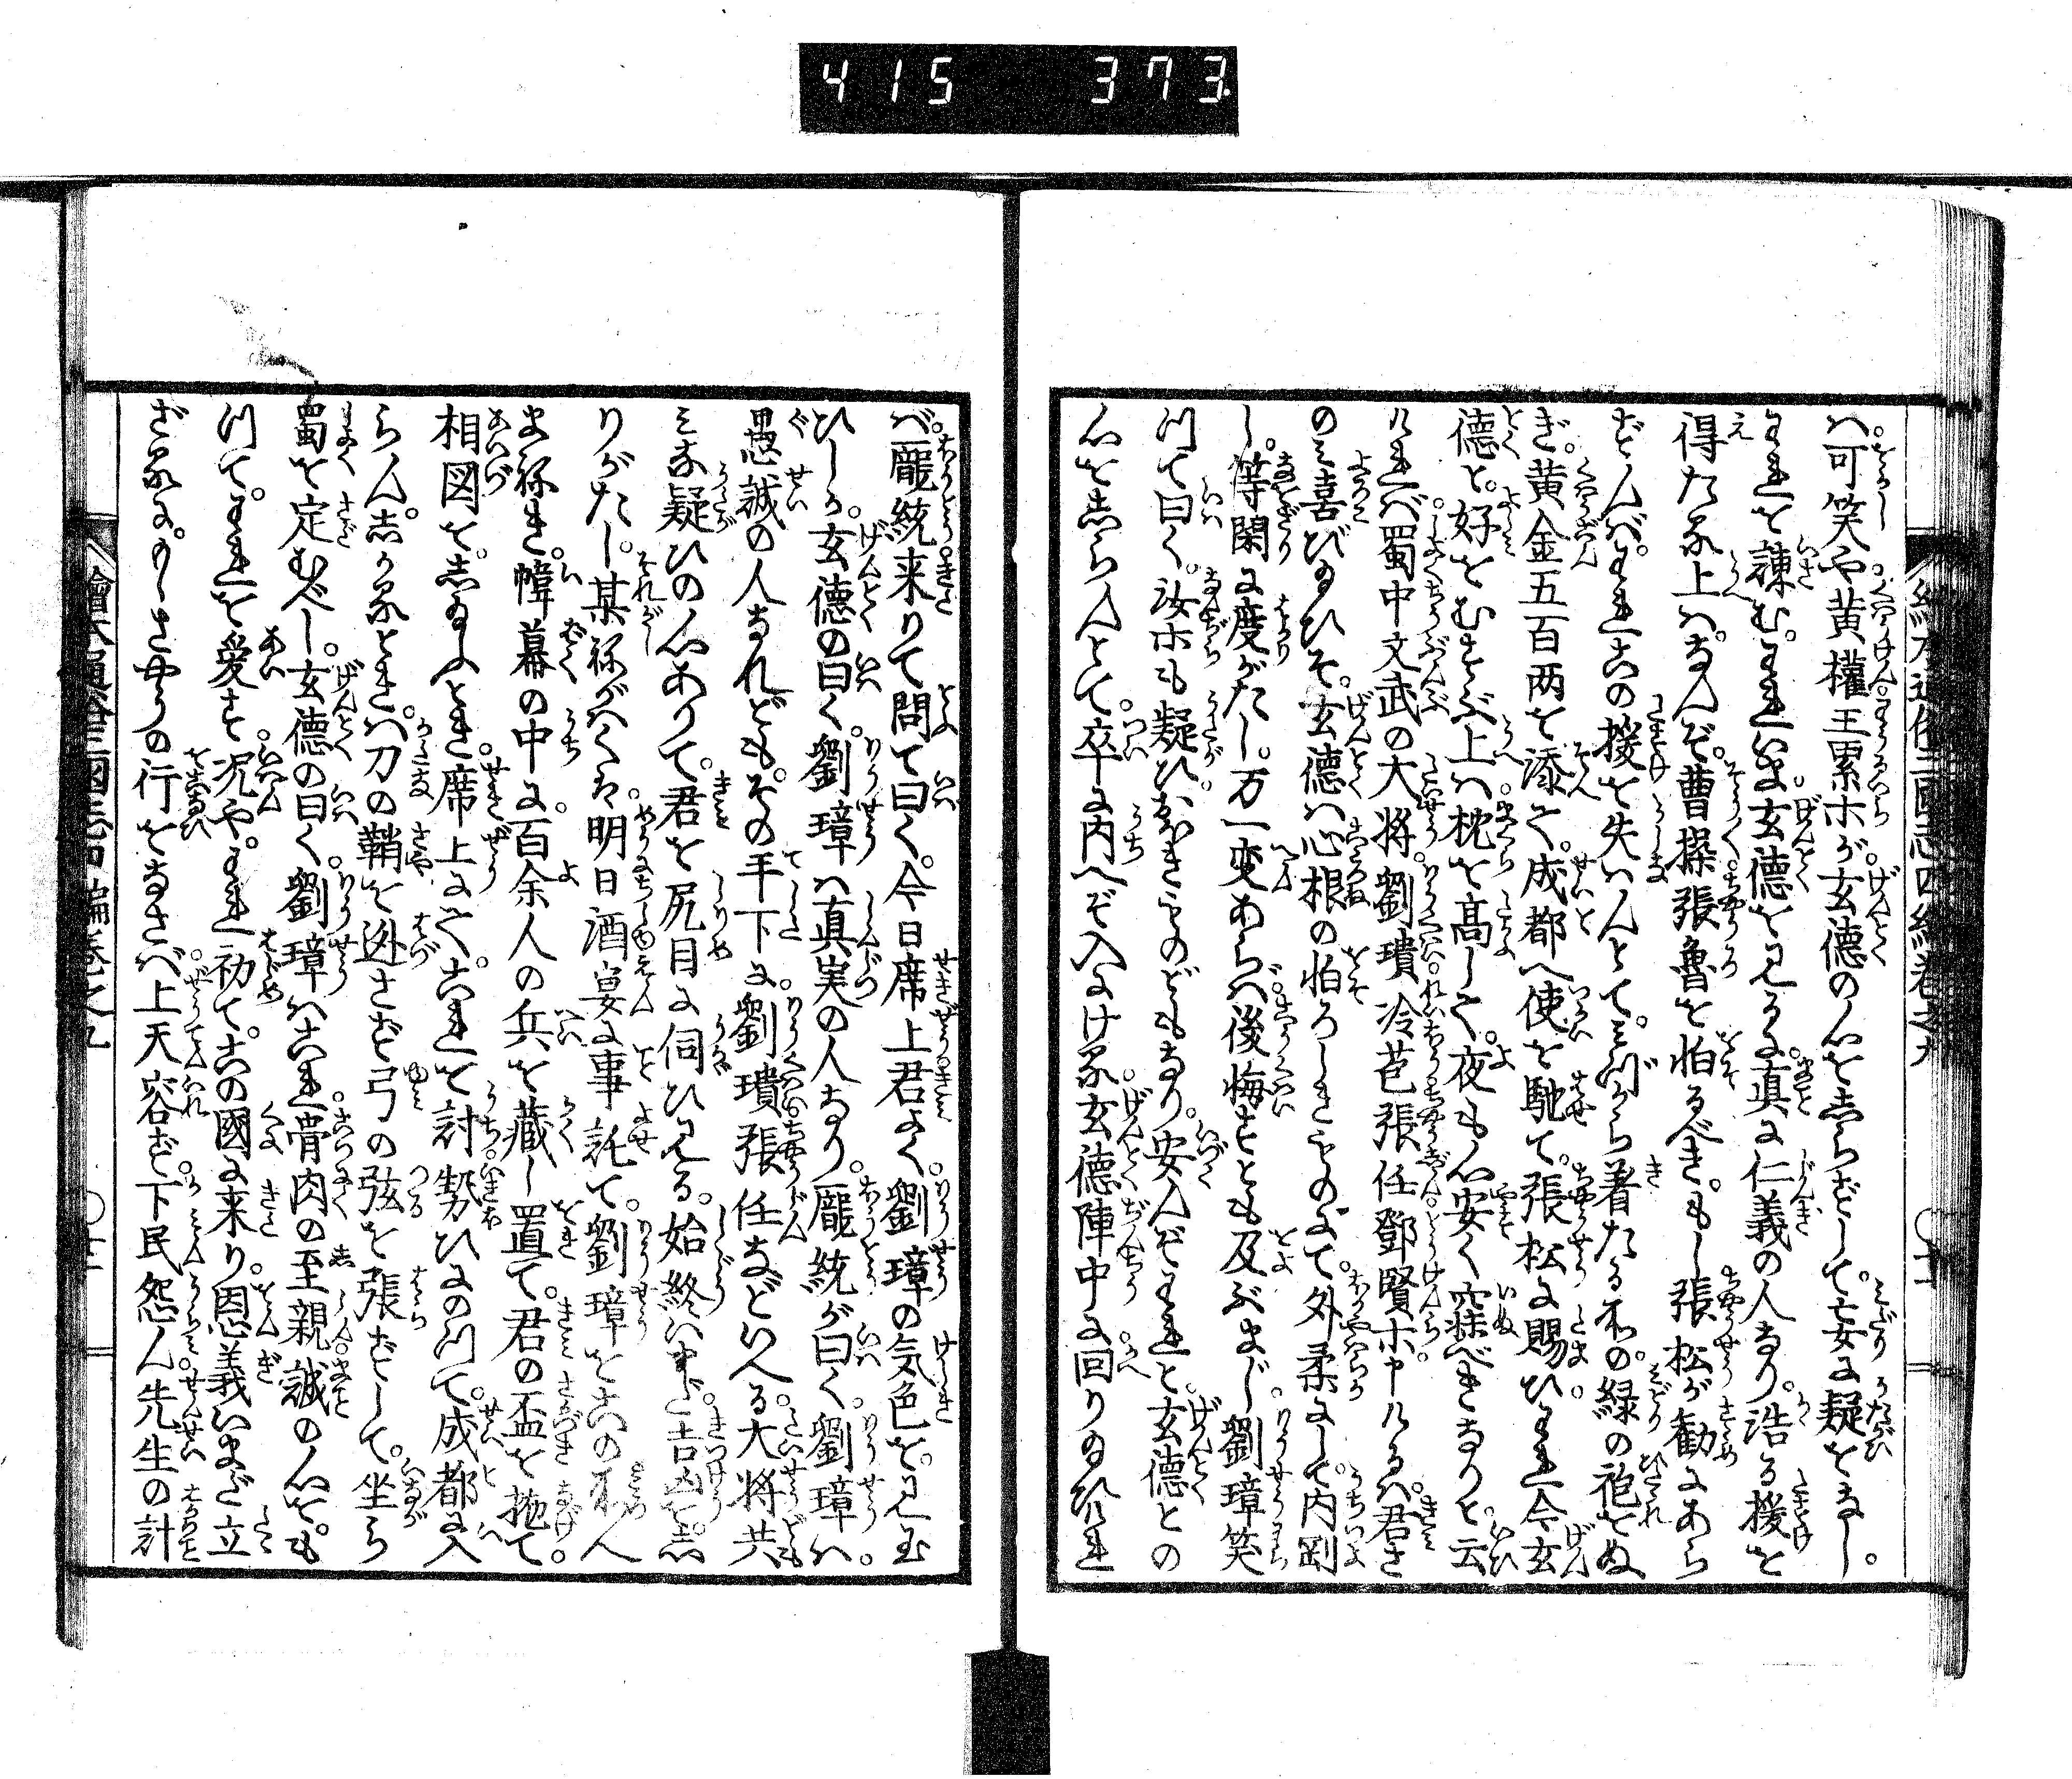 415 373.
ハ。可笑や黄權王累ホが玄徳の心を志らずして。妄に疑をなし。
われを諫む。われいま玄徳を見るに。真に仁義の人なり。浩る援を
得たる上ハ。なんぞ。曹操張魯を怕るべき。もし張松が勸にあら
ずんバ。われ此の援を失ハんとて。みづから着たる衣の緑の袍をぬ
ぎ。黄金五百両を添て。成都へ使を馳て。張松に賜ひ。われ今玄
徳と。好をむすぶ上ハ。枕を高して。夜も心安く寐べきなりと。云
けれバ。蜀中文武の大将。劉璝冷苞張任鄧賢ホ申けるハ。君さ
のミ喜び給ひそ。玄徳ハ心根の怕ろしきものにて。外柔にして。内剛
し。等閑に度がたし。万一変あらバ。後悔すとも及ぶまじ。劉璋笑
つて曰く。汝ホも疑ひおほきものどもなり。安んぞわれと。玄徳との
心を志らんとて。卒に内へぞ入にける。玄徳陣中に回り給ひけれ
バ。龐統来りて問て曰く。今日席上君よく。劉璋の気色を。見玉
ひしか。玄徳の曰く。劉璋ハ真実の人なり。龐統が曰く。劉璋ハ。
愚誠の人なれども。その手下に。劉璝張任などいへる。大将共
ミな疑ひの心ありて。君を尻目に伺ひ見る。始終ハまだ。吉凶を志
りがたし。某祢がハくハ。明日酒宴に事託て。劉璋をこの所へ
まねき。幃幕の中に。百余人の兵を藏し置て。君の盃を抛て。
相図を。志給ふとき。席上にて。これを討。勢ひにのつて。成都に入
らん。志かるときハ。刀の鞘を迯さず弓の弦を張ずして。坐ら
蜀を定むべし。玄徳の曰く。劉璋ハこれ骨肉の至親。誠の心をも
つて。われを愛す。况や。われ初て。此の國に来り。恩義いまだ立
ざるに。もしさやうの行をなさバ。上天容ず。下民怨ん。先生の計